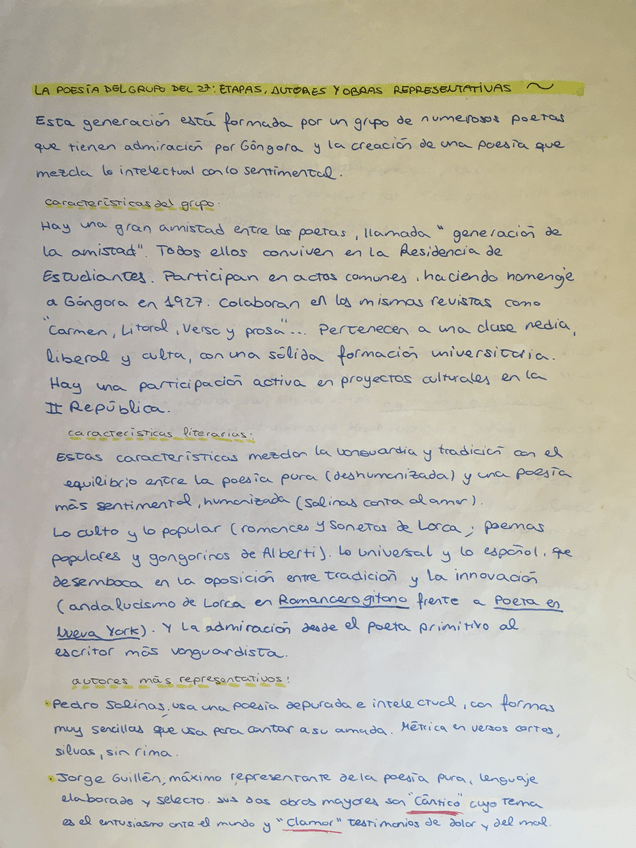 LA POESÍA DEL GRUPO DEL 27: ETAPAS, AUTORES Y OBRAS REPRESENTATIVAS
Esta generación está formada por un grupo de numerosos poetas
que tienen admiración por Góngora y la creación de una poesía que
mezcla lo intelectual con lo sentimental.
características del grupo:
Hay una gran amistad entre los poetas, llamada "generación de
la amistad". Todos ellos conviven en la Residencia de
Estudiantes. Participan en actos comunes, haciendo homenaje
a Góngora en 1927. Colaboran en las mismas revistas como
"Carmen, Litoral, Verso y prosa"... Pertenecen a una clase media,
liberal y culta, con una sólida formación universitaria.
Hay una participación activa en proyectos culturales en la
II República.
características literarias:
Estas características mezclan la vanguardia y tradición con el
equilibrio entre la poesía pura (deshumanizada) y una poesía
más sentimental, humanizada (Salinas canta al amor).
Lo culto y lo popular (romances y sonetos de Lorca; poemas
populares y gongorinos de Alberti). Lo universal y lo español, que
desemboca en la oposición entre tradición y la innovación
(andalucismo de Lorca en Romancero gitano frente a Poeta en
Nueva York). Y la admiración desde el poeta primitivo al
escritor más vanguardista.
autores más representativos:
Pedro Salinas, usa una poesía depurada e intelectual, con formas
muy sencillas que usa para cantar a su amada. Métrica en versos cortos,
silvas, sin rima.
Jorge Guillén, máximo representante de la poesía pura, lenguaje
elaborado y selecto. sus dos obras mayores son "Cántico" cuyo tema
es el entusiasmo ante el mundo y "Clamor" testimonios de dolor y del mal.